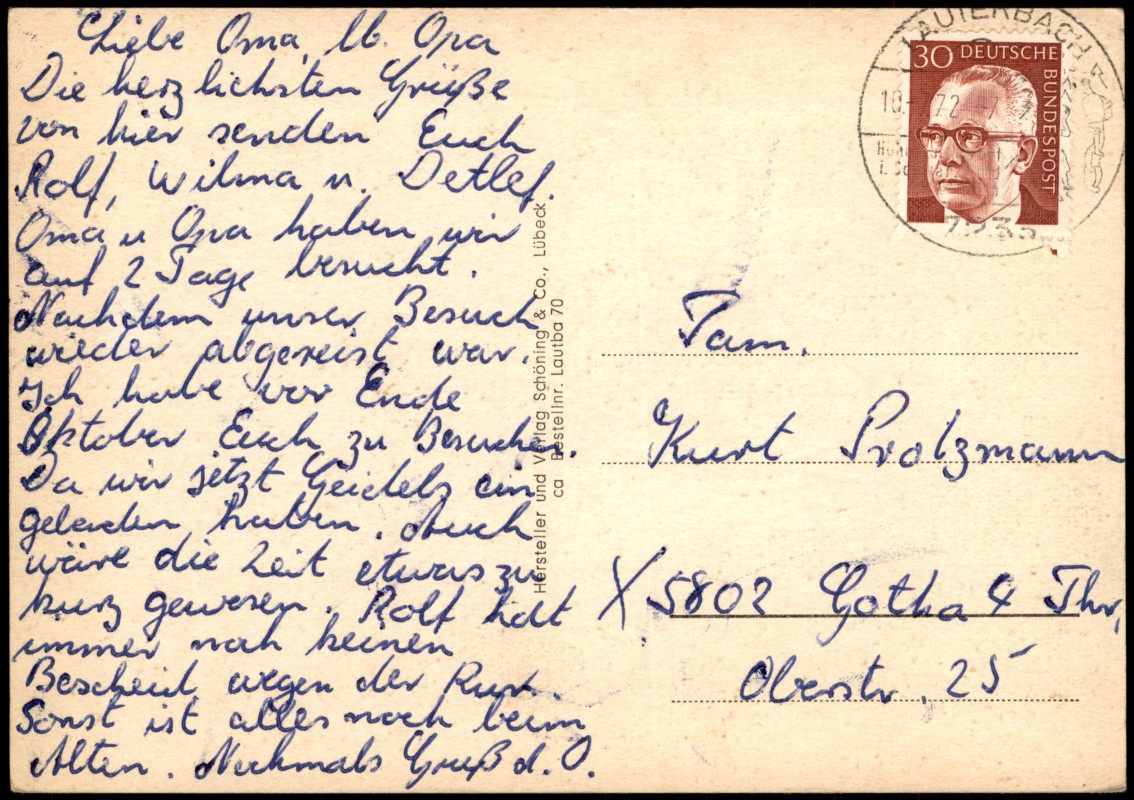 Liebe Oma, lb. Opa
Die herzlichsten Grüße
von hier senden Euch
Rolf, Wilma u. Detlef.
Oma u Opa haben wir
auf 2 Tage besucht.
Nachdem unser Besuch
wieder abgereist war.
Ich habe vor Ende
Oktober Euch zu Besuchen.
Da wir jetzt Geidelz ein
geladen haben. Auch
wäre die Zeit etwas zu
kurz gewesen. Rolf hat
immer noch keinen
Bescheid wegen der Kur.
Sonst ist alles noch beim
Alten. Nochmals Gruß d. O.
Hersteller und Verlag Schöning & Co., Lübeck
ca Bestellnr. Lautba 70
LAUTERBACH
30 DEUTSCHE BUNDESPOST
Fam.
Kurt Prolzmann
X 5802 Gotha 4 Thr,
Oberstr. 25